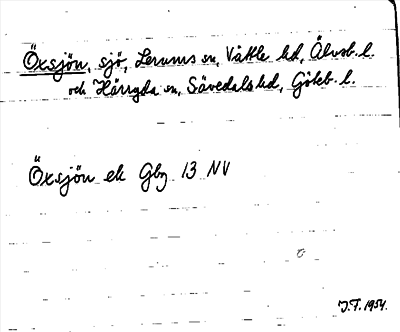 Öxsjön, sjö, Lerums sn, Vättle hd, Älvsb. l.
och Härryda sn, Sävedals hd, Göteb. l.
Öxsjön ek Gbg 13 NV
J.T. 1954.